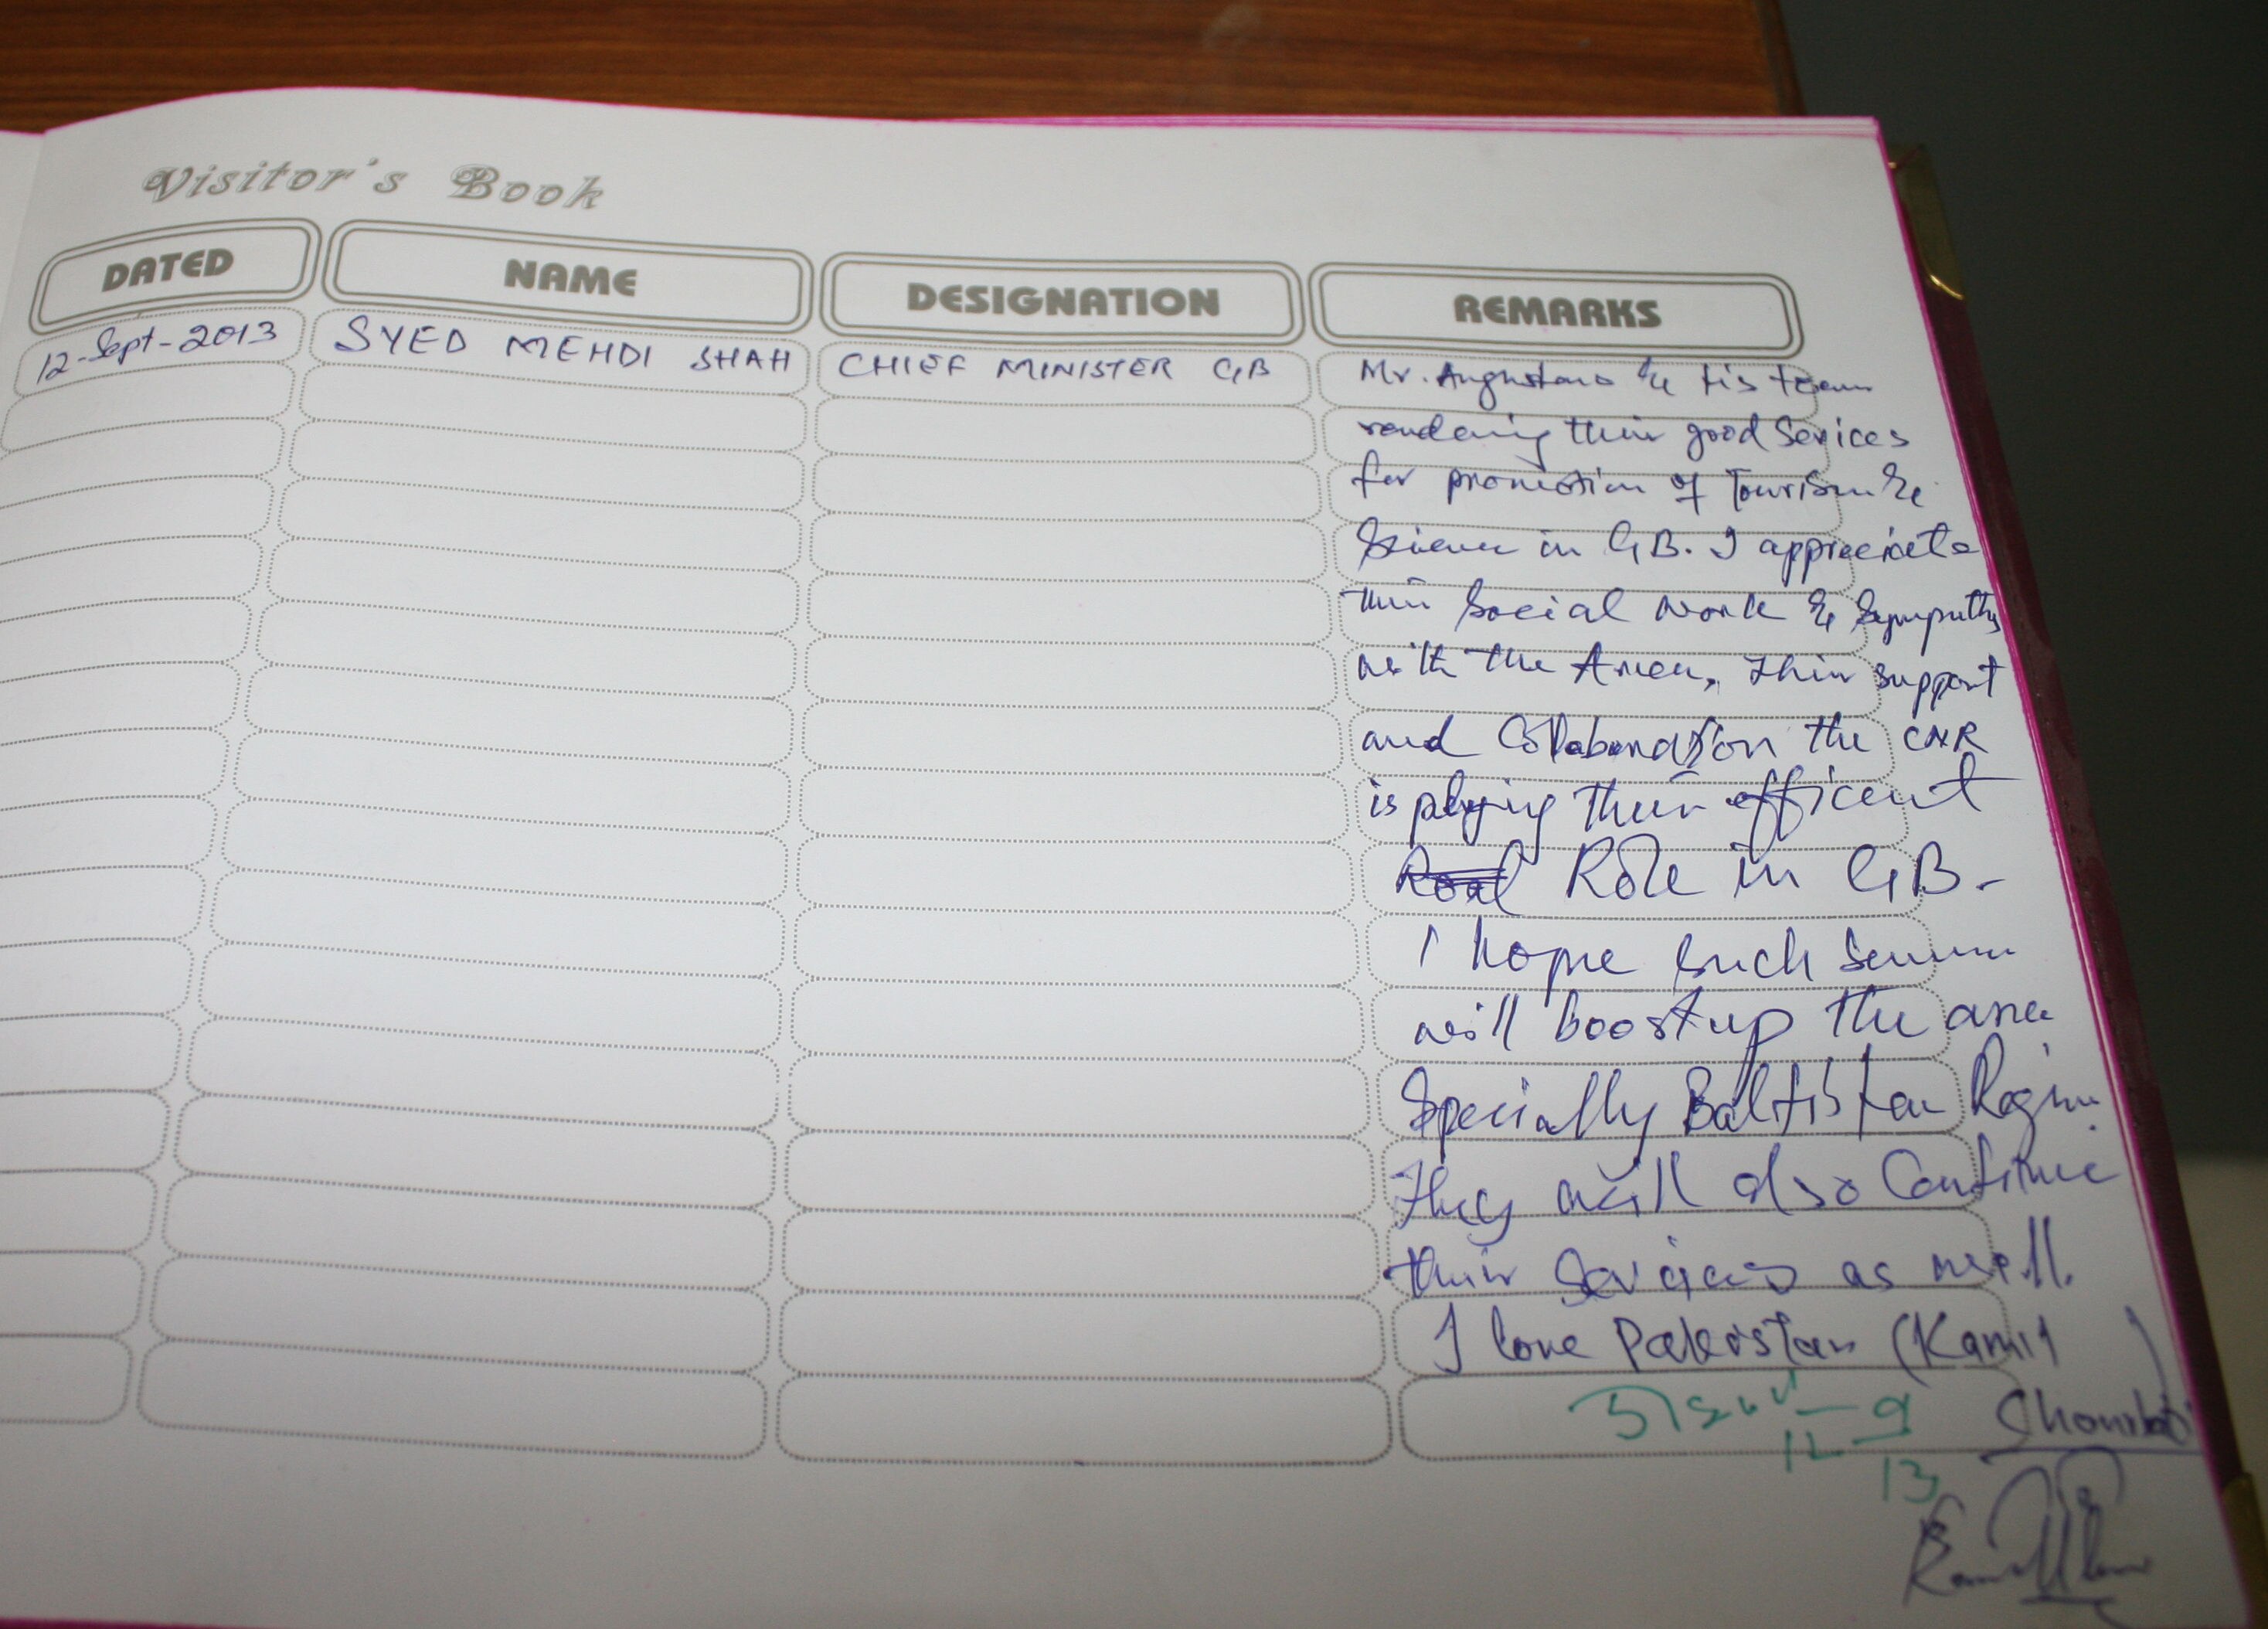 Visitor's Book
DATED NAME DESIGNATION REMARKS
12-Sept-2013 SYED MEHDI SHAH CHIEF MINISTER GB Mr. & his team
rendering their good Sevices
for promotion of Tourism &
Science in GB. I appreciate
their Social work & Sympathy
with the Area, their support
and Collaboration the CNR
is playing their efficent
Role in GB-
I hope such
will boost up the area
Specially Baltistan Region
They will also Continue
their Services as well.
I love Pakistan (Kamil
12 9
13